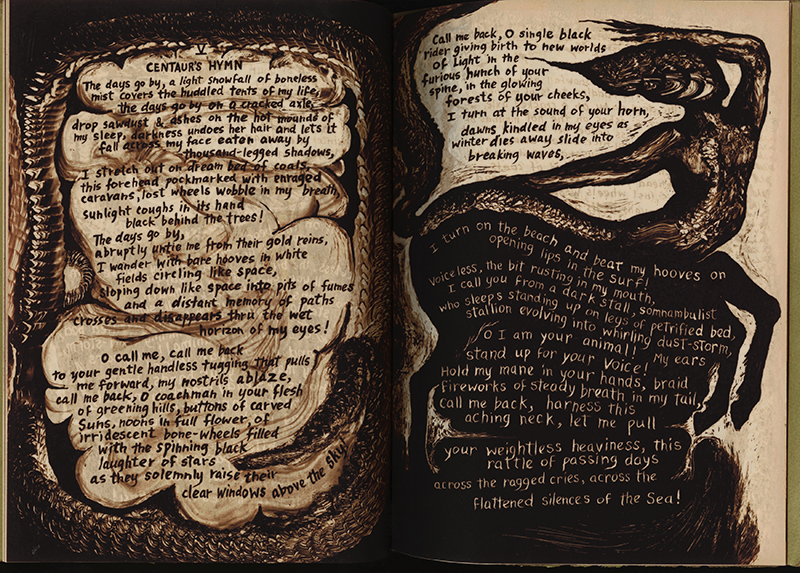 V
CENTAUR'S HYMN
The days go by, a light snowfall of boneless
mist covers the huddled tents of my life,
the days go by on a cracked axle,
drop sawdust & ashes on the hot mounds of
my sleep, darkness undoes her hair and lets it
fall across my face eaten away by
thousand-legged shadows,
I stretch out on dream bed of coals,
this forehead pockmarked with enraged
caravans, lost wheels wobble in my breath,
sunlight coughs in its hand
black behind the trees!
The days go by,
abruptly untie me from their gold reins,
I wander with bare hooves in white
fields circling like space,
sloping down like space into pits of fumes
and a distant memory of paths
crosses and disappears thru the wet
horizon of my eyes!
O call me, call me back
to your gentle handless tugging that pulls
me forward, my nostrils ablaze,
call me back, O coachman in your flesh
of greening hills, buttons of carved
Suns, noons in full flower, of
irridescent bone-wheels filled
with the spinning black
laughter of stars
as they solemnly raise their
clear windows above the Sky!
Call me back, O single black
rider giving birth to new worlds
of Light in the
furious hunch of your
spine, in the glowing
forests of your cheeks,
I turn at the sound of your horn,
dawns kindled in my eyes as
winter dies away slide into
breaking waves,
I turn on the beach and beat my hooves on
opening lips in the surf!
Voiceless, the bit rusting in my mouth,
I call you from a dark stall, somnambulist
who sleeps standing up on legs of petrified bed,
stallion evolving into whirling dust-storm,
O I am your animal! My ears
stand up for your voice!
Hold my mane in your hands, braid
fireworks of steady breath in my tail,
Call me back, harness this
aching neck, let me pull
your weightless heaviness, this
rattle of passing days
across the ragged cries, across the
flattened silences of the Sea!